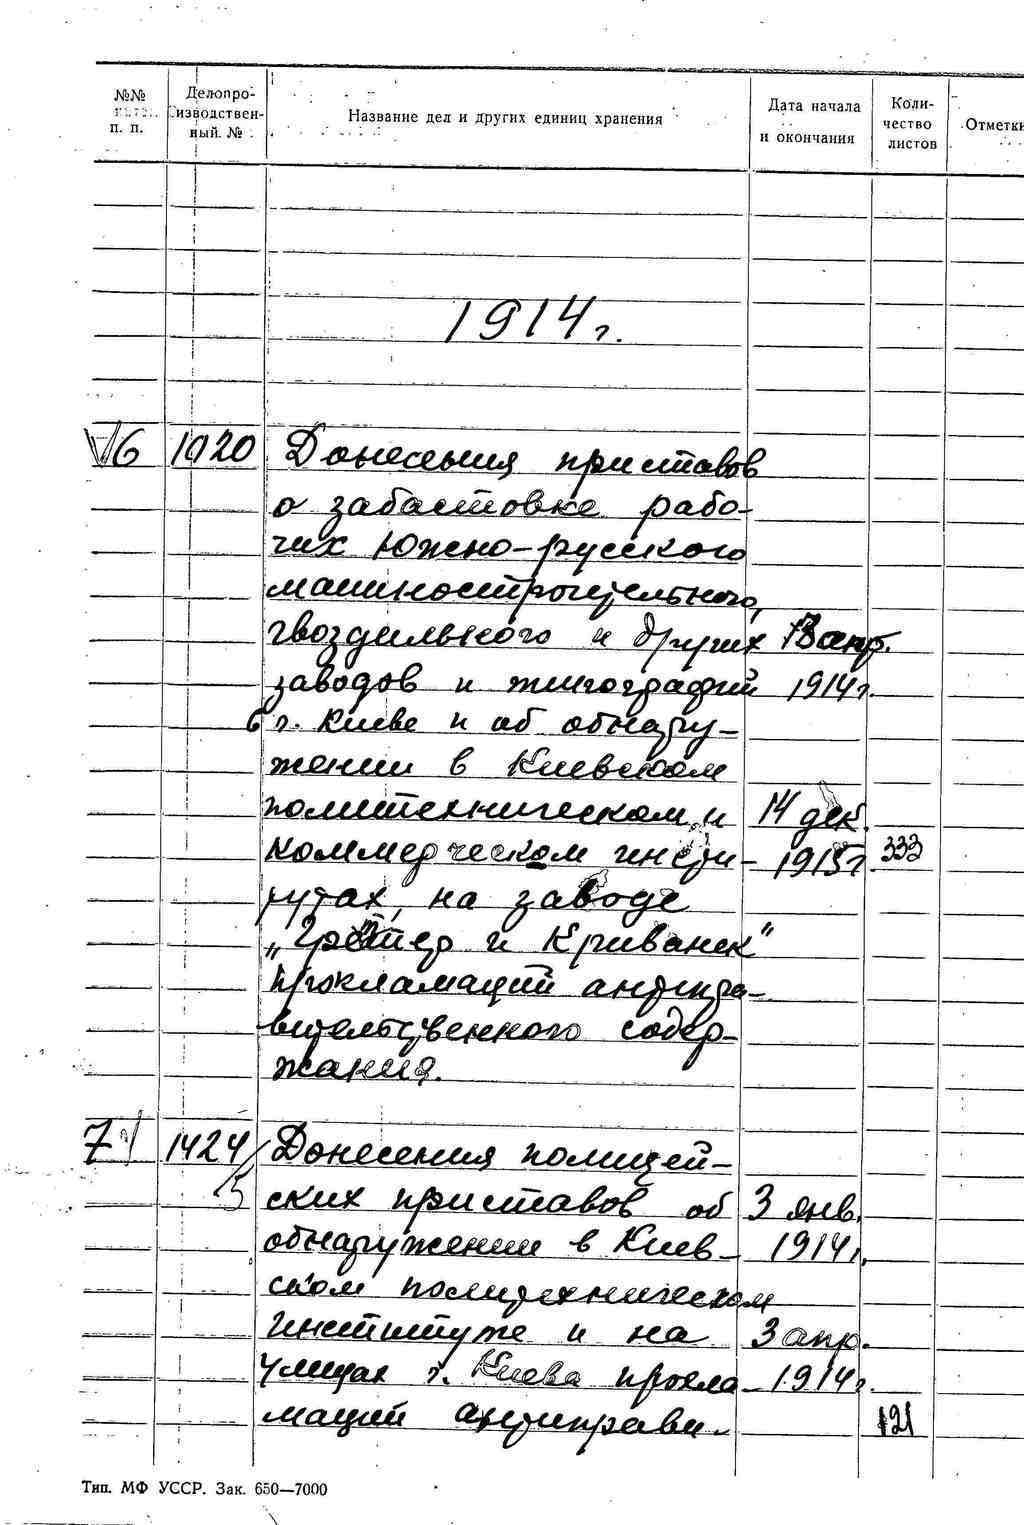 №№ п. п. | Делопроизводственный № | Название дел и других единиц хранения | Дата начала и окончания | Количество листов | Отметки
1914 г.
6 1020 Донесения приставов
о забастовке рабо-
чих Южно-русского
машиностроительного,
гвоздильного и других 13 апр.
заводов и типографий 1914 г.
в г. Киеве и об обнару-
жении в Киевском
политехническом и 14 дек.
коммерческом инсти- 1915 г. 333
тутах, на заводе
„Гретер и Криванек"
прокламаций антипра-
вительственного содер-
жания.
7 1424/5 Донесения полицей-
ских приставов об 3 янв.
обнаружении в Киев- 1914 г.
ском политехническом
институте и на 3 апр.
улицах г. Киева прокла- 1914 г.
маций антиправи- 121
Тип. МФ УССР. Зак. 650—7000